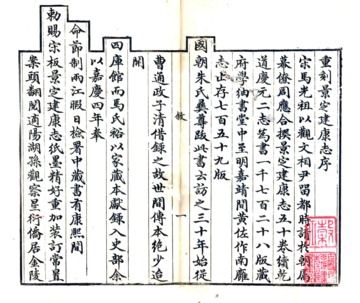 重刻景定建康志序
宋馬光祖以觀文相尹留都時請於朝屬
幕僚周應合撰景定建康志五十卷續乾
道慶元二志為書一千七百二十八版藏
府學紬書堂中至明嘉靖間黃佐作南雍
志止存七百五十九版
敘
一
國朝朱氏彝尊跋此書云訪之三十年始從
曹通政子清借錄之故世間傳本絕少逮
開
四庫館而馬氏裕以家藏本獻錄入史部余
以嘉慶四年奉
命節制兩江暇日檢署中藏書有康熙間
勅賜宋板景定建康志紙墨精好重加裝訂常置
案頭翻閱適陽湖孫觀察星衍僑居金陵